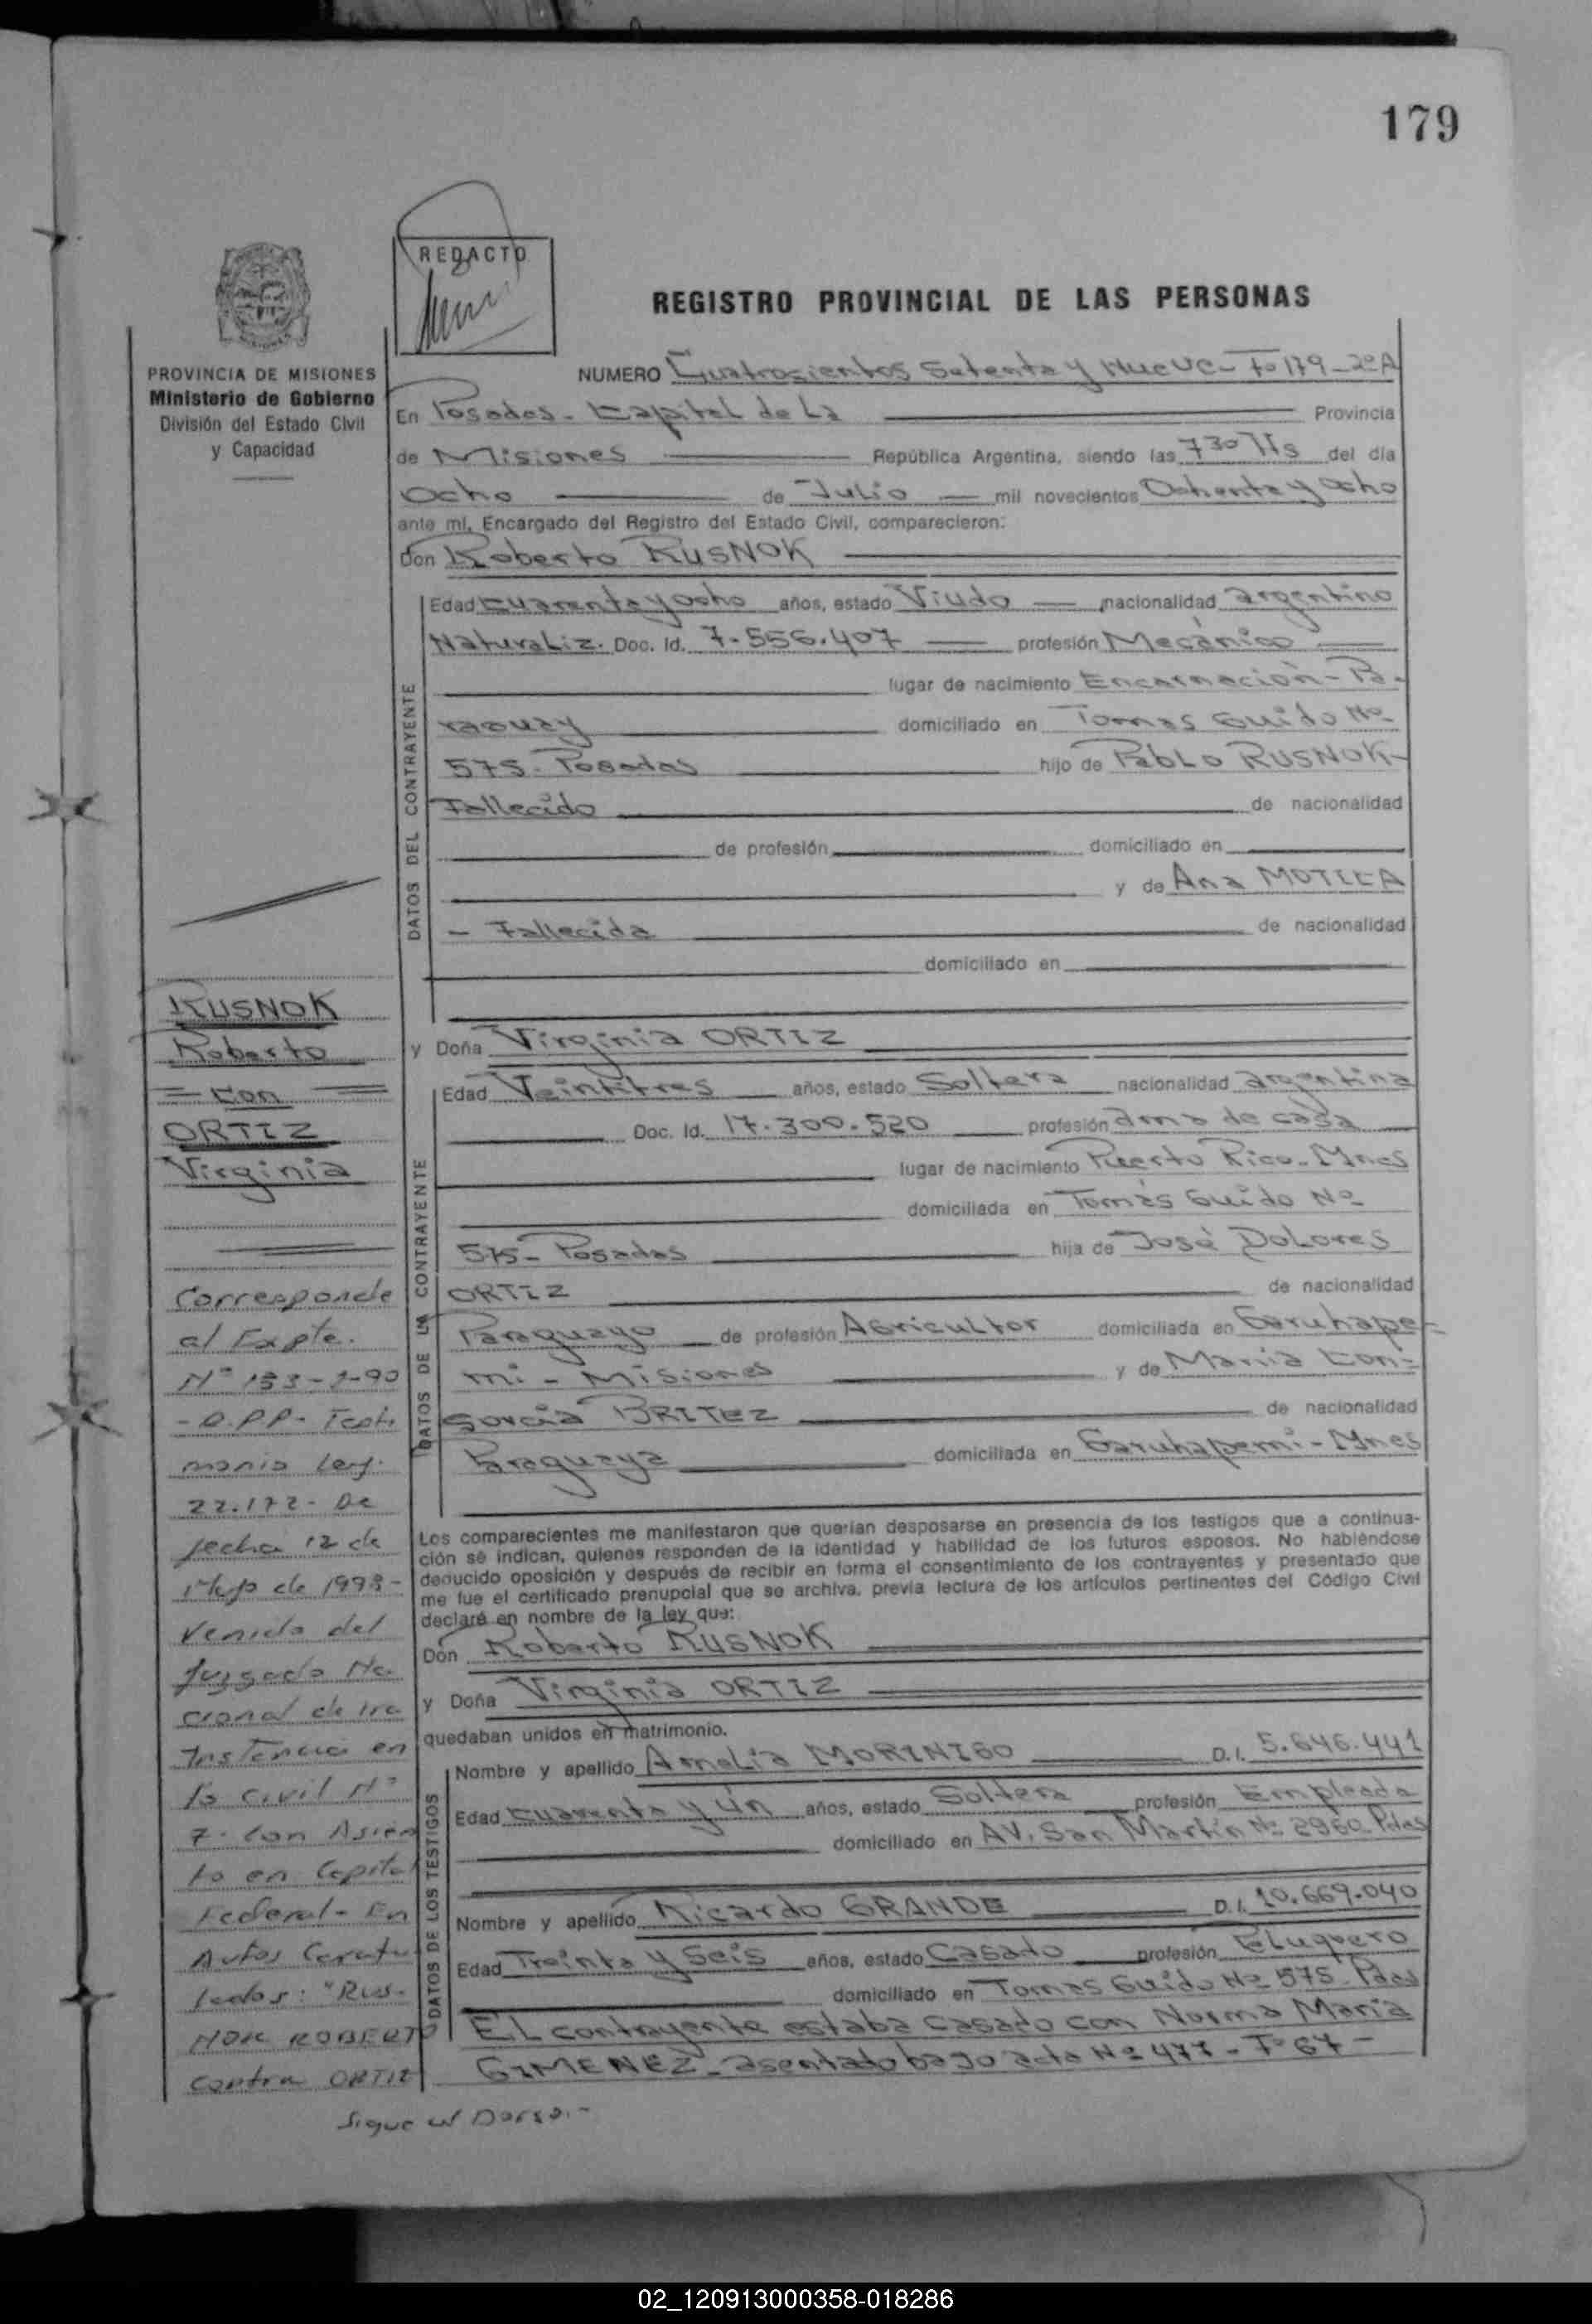 179
REDACTO
REGISTRO PROVINCIAL DE LAS PERSONAS
PROVINCIA DE MISIONES
Ministerio de Gobierno
División del Estado Civil
y Capacidad
NUMERO Cuatrosientos Setenta y Nueve - Fo 179 - 2º A
En Posadas - Capital de La Provincia
de Misiones República Argentina, siendo las 7 30 Hs del día
Ocho de Julio mil novecientos Ochenta y ocho
ante mí, Encargado del Registro del Estado Civil, comparecieron:
Don Roberto RUSNOK
DATOS DEL CONTRAYENTE
Edad Cuarenta y ocho años, estado Viudo nacionalidad argentino
Naturaliz. Doc. Id. 7.556.407 profesión Mecánico
lugar de nacimiento Encarnación - Pa-
raguay domiciliado en Tomas Guido Nº
575 - Posadas hijo de Pablo RUSNOK -
Fallecido de nacionalidad
de profesión domiciliado en
y de Ana
- Fallecida de nacionalidad
domiciliado en
RUSNOK
Roberto
= con =
ORTIZ
Virginia
y Doña Virginia ORTIZ
DATOS DE LA CONTRAYENTE
Edad Veintitres años, estado Soltera nacionalidad argentina
Doc. Id. 17.300.520 profesión ama de casa
lugar de nacimiento Puerto Rico - Mnes
domiciliada en Tomás Guido Nº
575 - Posadas hija de José Dolores
ORTIZ de nacionalidad
Paraguayo de profesión Agricultor domiciliada en Garuhape-
mi - Misiones y de Maria Con-
sorcia BRITEZ de nacionalidad
Paraguaya domiciliada en Garuhapemi - Mnes
Los comparecientes me manifestaron que querían desposarse en presencia de los testigos que a continua-
ción se indican, quienes responden de la identidad y habilidad de los futuros esposos. No habiéndose
deducido oposición y después de recibir en forma el consentimiento de los contrayentes y presentado que
me fue el certificado prenupcial que se archiva, previa lectura de los artículos pertinentes del Código Civil
declaré en nombre de la ley que:
Don Roberto RUSNOK
y Doña Virginia ORTIZ
quedaban unidos en matrimonio.
DATOS DE LOS TESTIGOS
Nombre y apellido Amelia MORINIGO D.I. 5.646.441
Edad Cuarenta y ún años, estado Soltera profesión Empleada
domiciliado en AV. San Martin Nº 2960 Pdas
Nombre y apellido Ricardo GRANDE D.I. 10.669.040
Edad Treinta y Seis años, estado Casado profesión Peluquero
domiciliado en Tomas Guido Nº 575 - Pdas
El contrayente estaba casado con Norma Maria
GIMENEZ - asentado bajo acta Nº 477 - Fº 67 -
Corresponde
al Expte.
Nº 153 - -90
- D.P.P - Testi
monio Ley.
22.172 - De
fecha 12 de
Mayo de 1998 -
Venido del
Juzgado Na
cional de 1ra
Instancia en
lo civil Nº
7. Con Asien
to en Capital
Federal - En
Autos Caratu
lados: "Rus-
NOK ROBERTO
contra ORTIZ
Sigue al Dorso.-
02_120913000358-018286